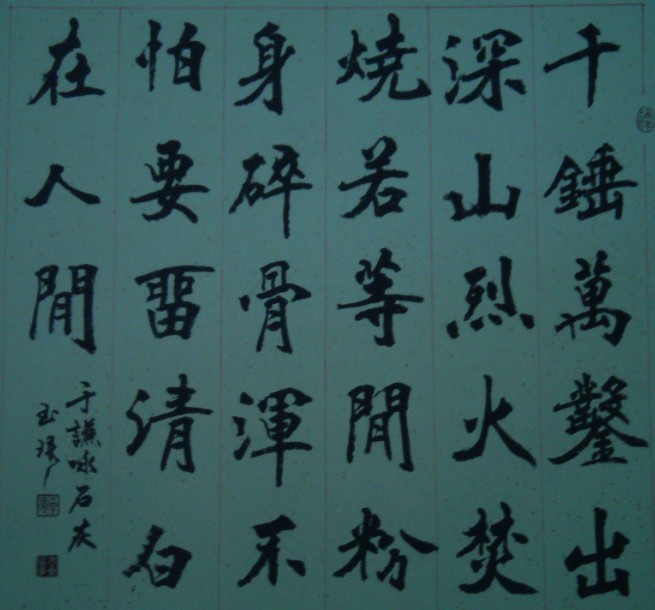 千錘萬鑿出
深山烈火焚
燒若等閒粉
身碎骨渾不
怕要畱清白
在人閒
于謙咏石灰